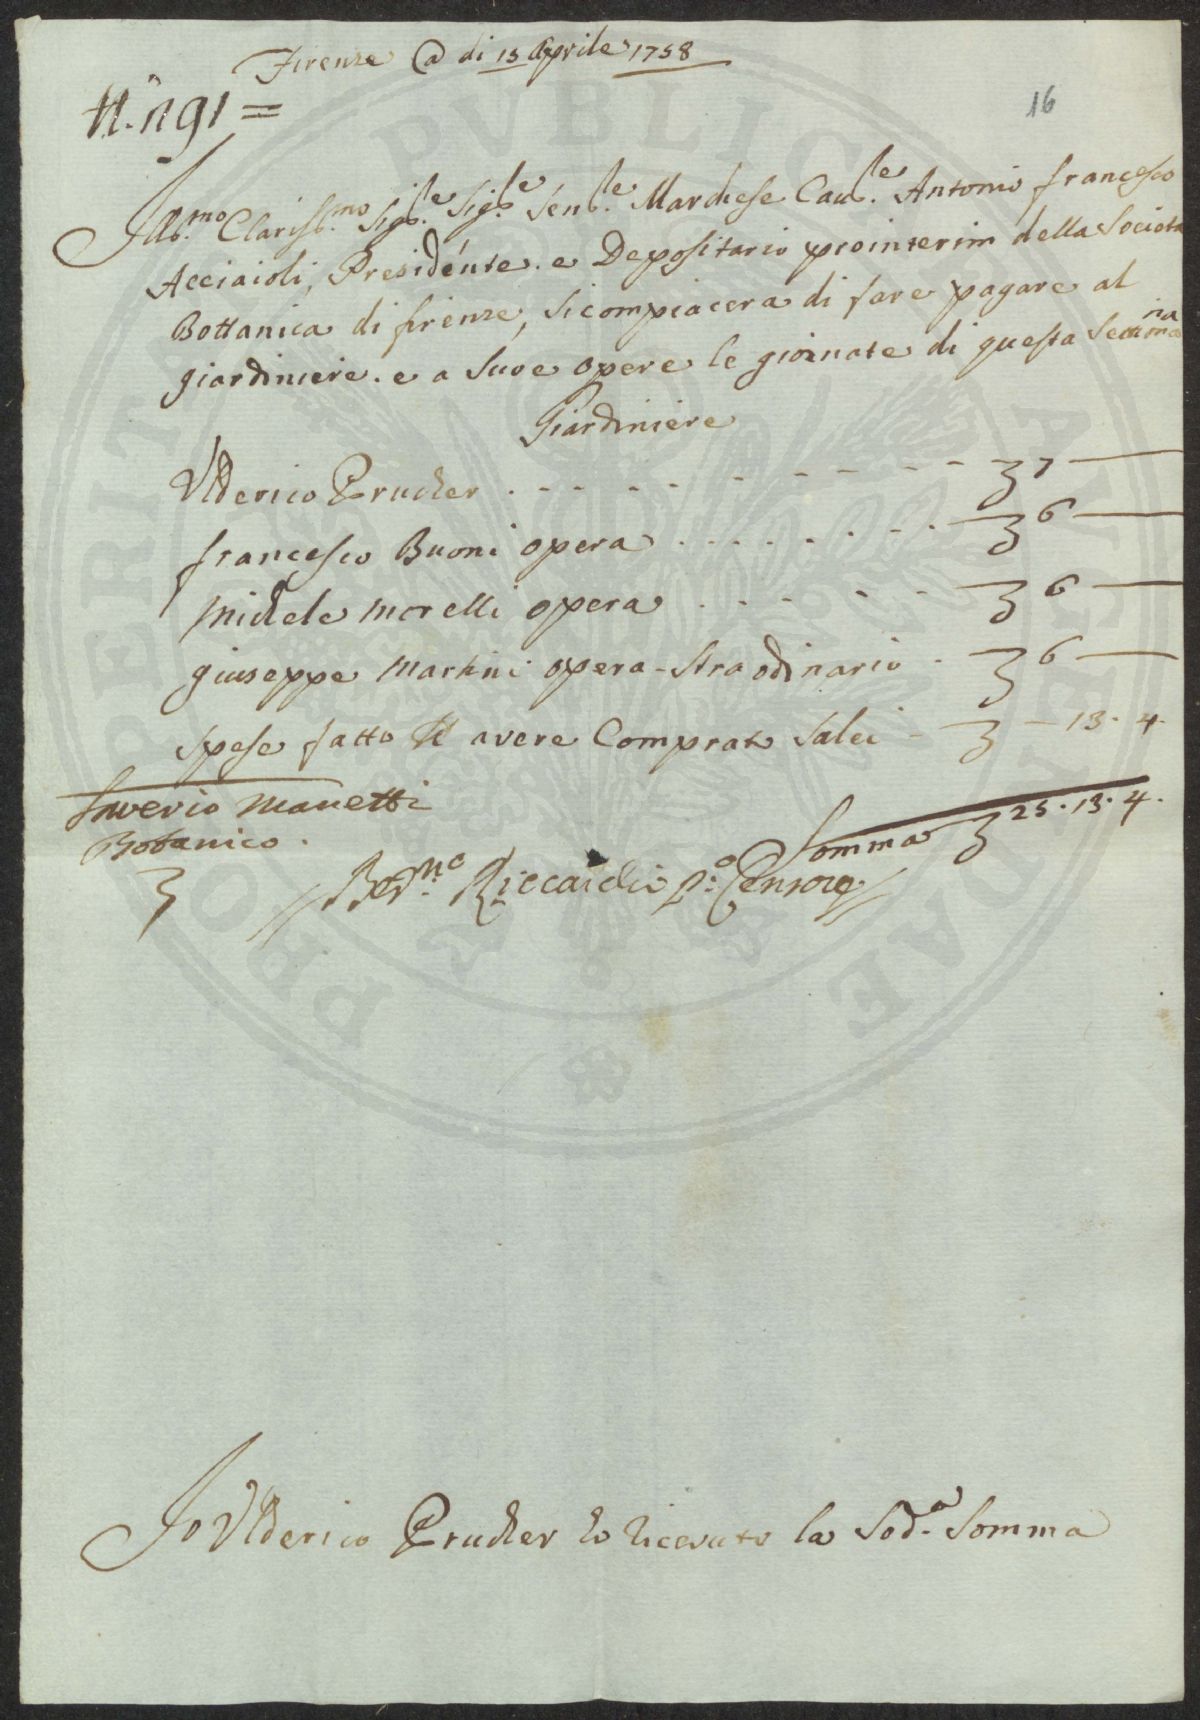 Firenze @ di 15 Aprile 1758
N.º 191 =
16
Ill.mo Clariss.mo Sig.le Sig.le Sen.le Marchese Cau.le Antonio francesco
Acciaioli, Presidente. e Depositario prointerim della Societa
Bottanica di firenze, si compiacera di fare pagare al
giardiniere. e a Sue opere le giornate di questa Settimana
Giardiniere
Ulderico Prucher . - - - - - - - - 7 —
francesco Buoni opera . . . . . . - . 6 —
Michele Morelli opera . - . - - - 6 —
giuseppe Martini opera - Straodinario . 6 —
spese fatto avere Comprato Salci - — 13. 4.
Saverio Manetti
Botanico.
Somma 25. 13. 4.
Ber.no Riccardi p.º Censore
Io Ulderico Prucher ho ricevuto la Sod.a Somma
PRO PVBLICAE PERITA AVGENDAE